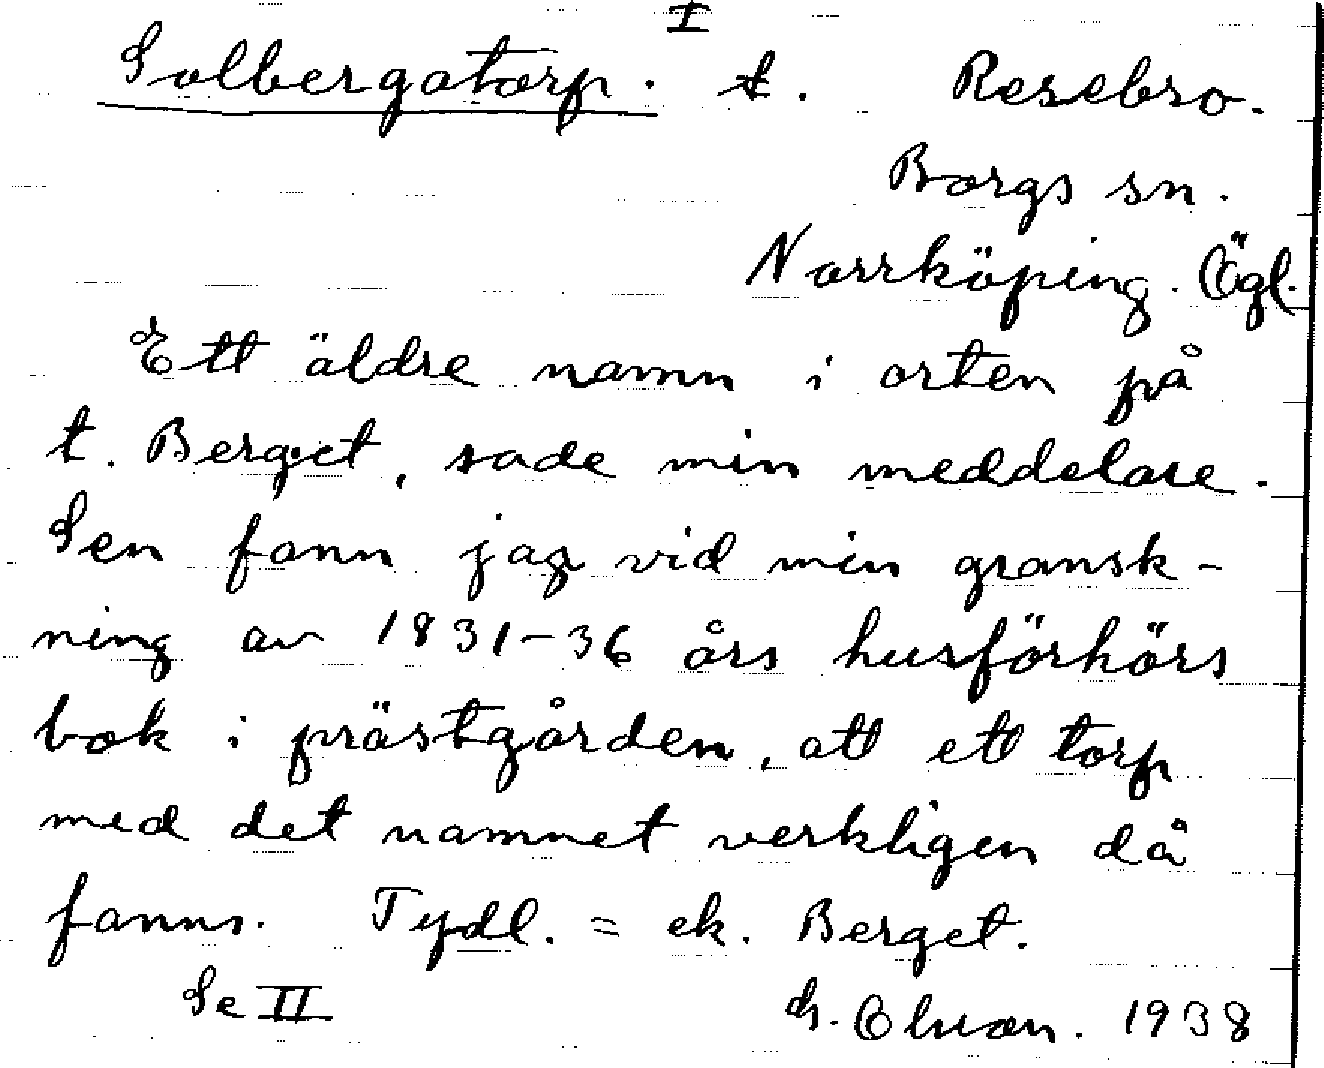 I
Solbergatorp. t. Resebro.
Borgs sn.
Norrköping. Ögl.
Ett äldre namn i orten på
t. Berget, sade min meddelare.
Sen fann jag vid min gransk-
ning av 1831-36 års husförhörs
bok i prästgården, att ett torp
med det namnet verkligen då
fanns. Tydl. = ek. Berget.
Se II 1938